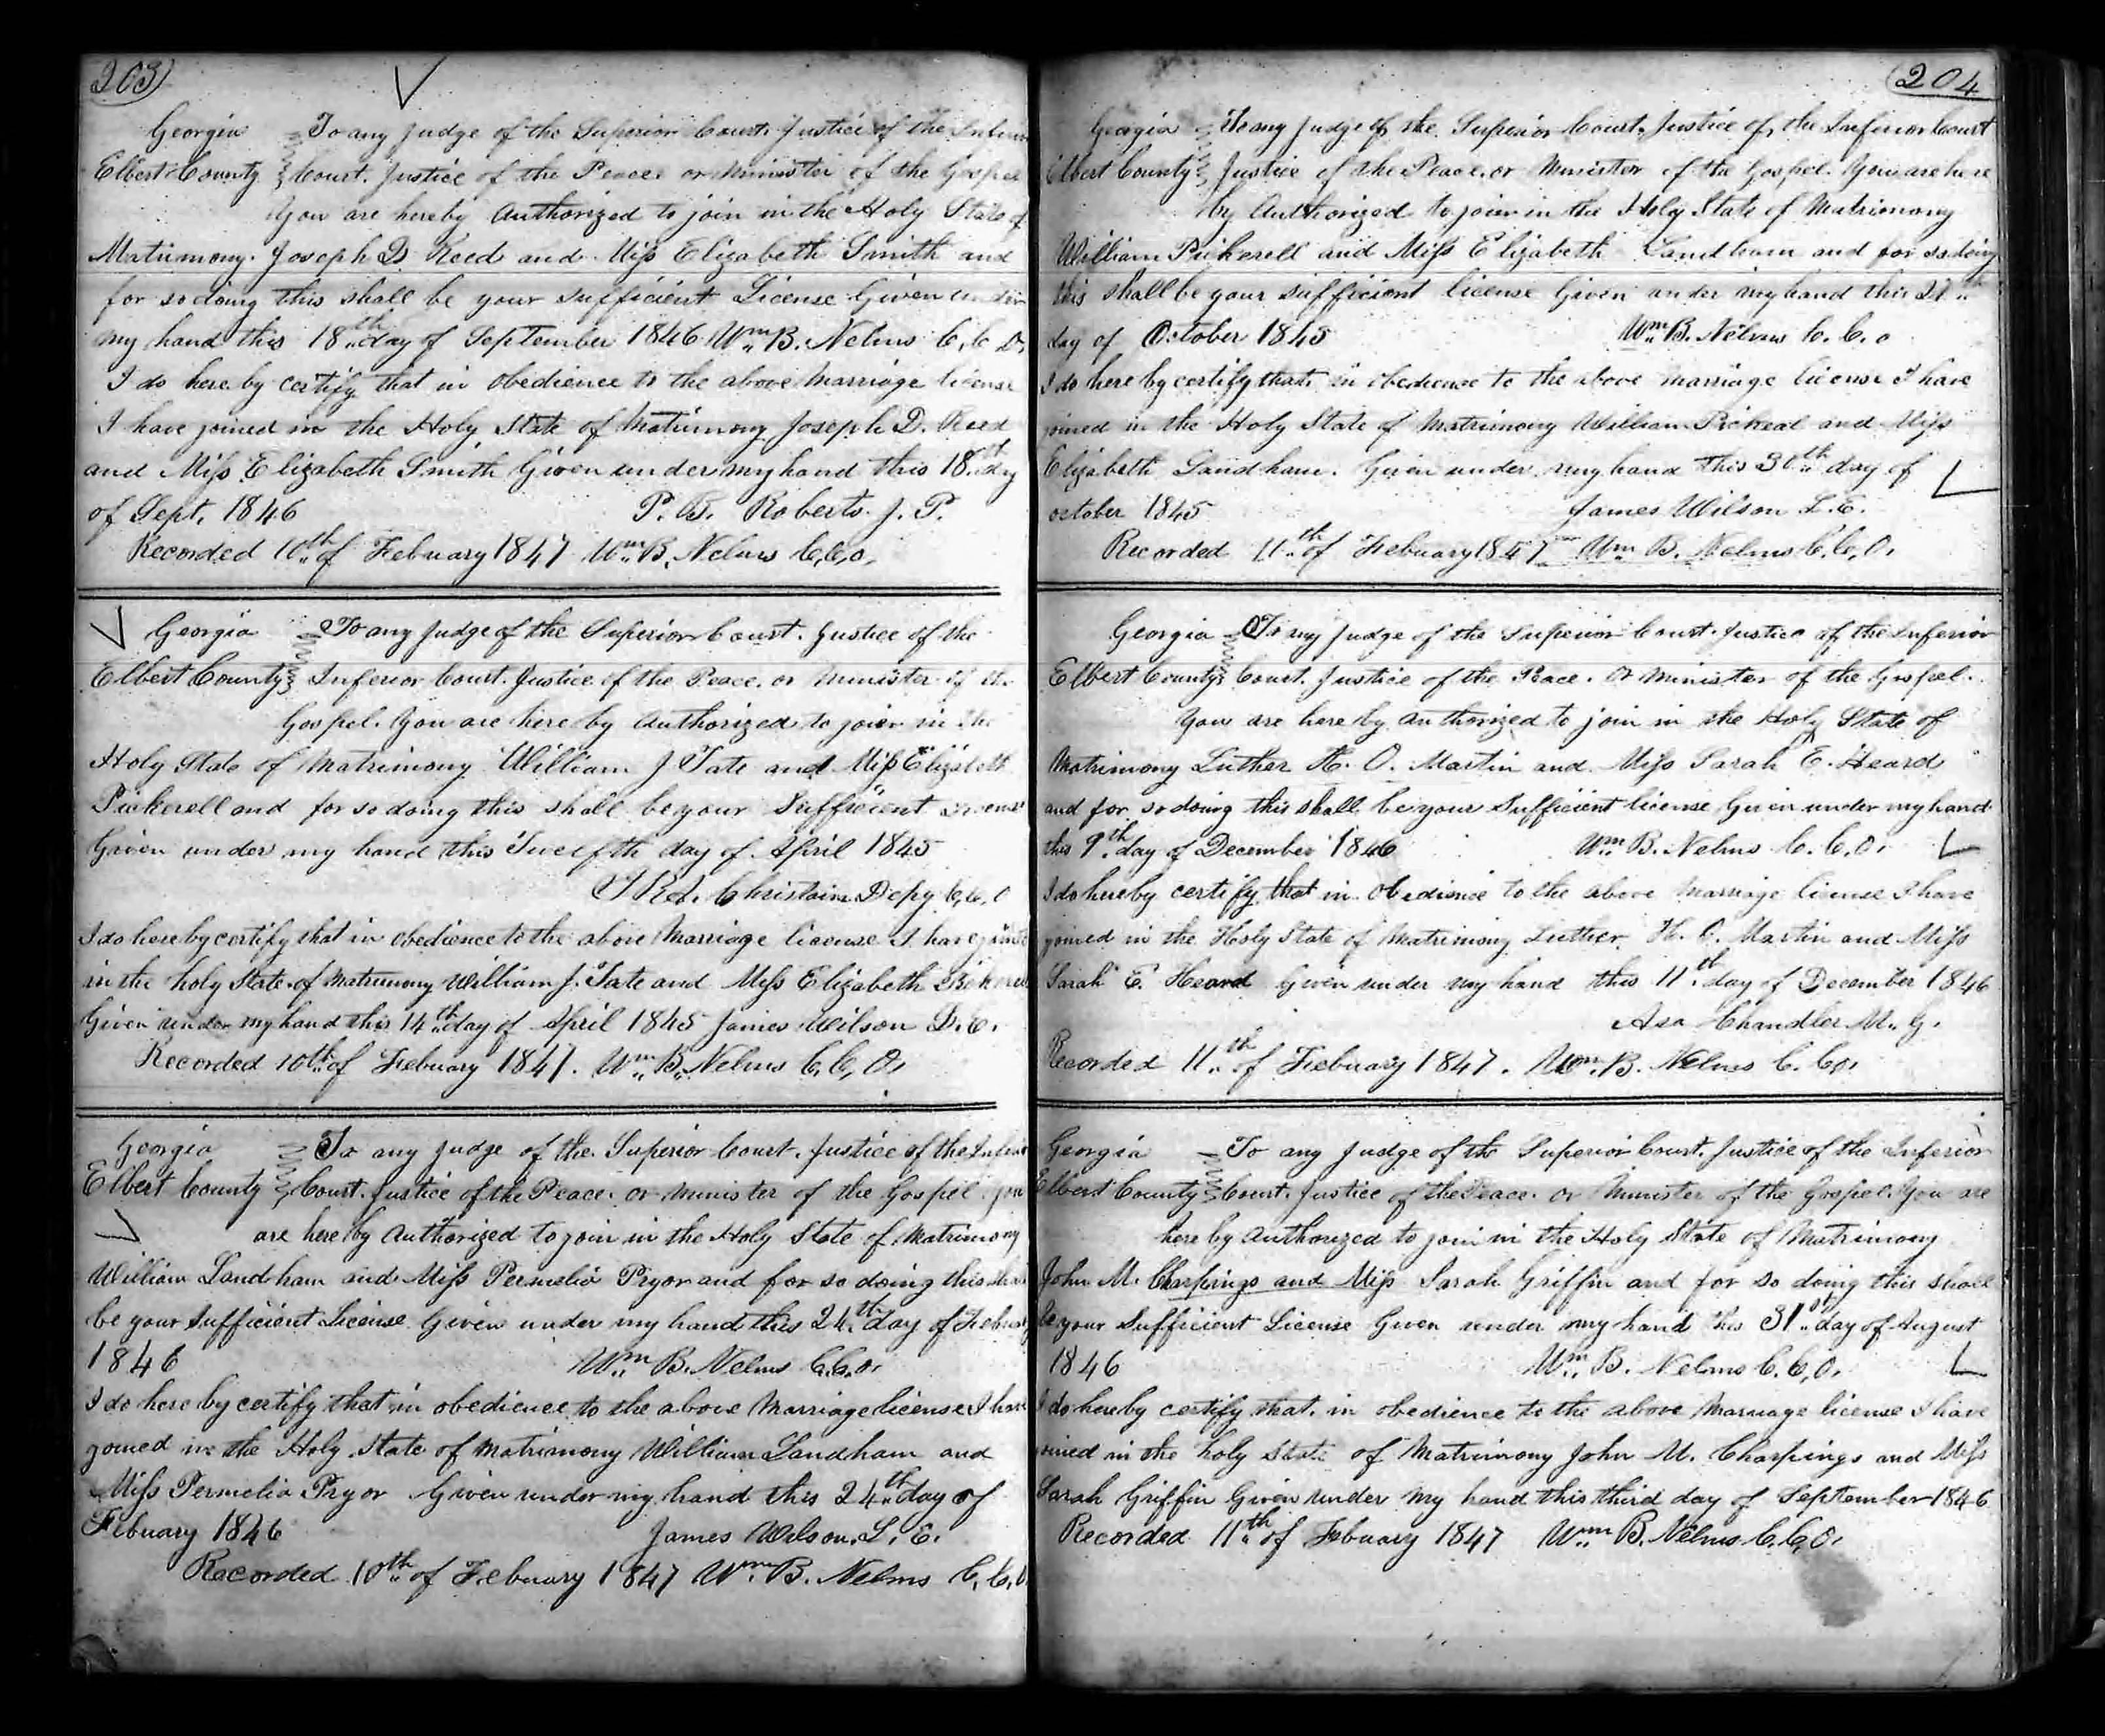 203
Georgia To any Judge of the Superior Court. Justice of the Inferior
Elbert County Court. Justice of the Peace or Minister of the Gospel
You are hereby Authorized to join in the Holy State of
Matrimony. Joseph D Reed and Miss Elizabeth Smith and
for so doing this shall be your sufficient License Given under
my hand this 18th day of September 1846 Wm B. Nelms C. C. O.
I do here by certify that in obedience to the above Marriage license
I have joined in the Holy State of Matrimony Joseph D. Reed
and Miss Elizabeth Smith Given under my hand this 18th day
of Sept. 1846 P. B. Roberts J. P.
Recorded 10th of February 1847 Wm B. Nelms C.C.O.
Georgia To any Judge of the Superior Court. Justice of the
Elbert County Inferior Court. Justice of the Peace. or Minister of the
Gospel. You are here by Authorized to join in the
Holy State of Matrimony William J Tate and Miss Elizabeth
Pickerell and for so doing this shall be your Sufficient License
Given under my hand this Twelfth day of April 1845
Christain Depy C.C.O
I do here by certify that in obedience to the above Marriage license I have joined
in the holy State of Matrimony William J. Tate and Miss Elizabeth
Given under my hand this 14th day of April 1845 James Wilson L.E.
Recorded 10th of Febuary 1847. Wm B. Nelms C.C.O.
Georgia To any Judge of the Superior Court. Justice of the Inferior
Elbert County Court. Justice of the Peace. or Minister of the Gospel you
are here by Authorized to join in the Holy State of Matrimony
William Landham and Miss Permelia Pryor and for so doing this shall
be your Sufficient License Given under my hand this 24th day of Febuary
1846 Wm B. Nelms C.C.O.
I do here by certify that in obedience to the above Marriage license I have
joined in the Holy State of Matrimony William Landham and
Miss Permelia Pryor Given under my hand this 24th day of
Febuary 1846 James Wilson L. E.
Recorded 10th of Febuary 1847 Wm B. Nelms C.C.O
204
Georgia To any Judge of the Superior Court. Justice of the Inferior Court
Elbert County Justice of the Peace. or Minister of the Gospel. You are here
by Authorized to join in the Holy State of Matrimony
William Pickerell and Miss Elizabeth Landham and for so doing
this shall be your sufficient license Given under my hand this
day of October 1845 Wm B. Nelms C. C. O
I do here by certify that in obedience to the above marriage license I have
joined in the Holy State of Matrimony William and Miss
Elizabeth Landham. Given under my hand this 30th day of
october 1845 James Wilson L. E.
Recorded 11th of Febuary 1847 Wm B. Nelms C.C.O.
Georgia To any Judge of the Superior Court. Justice of the Inferior
Elbert County Court. Justice of the Peace. Or Minister of the Gospel.
You are here by authorized to join in the Holy State of
Matrimony Luther H. O. Martin and Miss Sarah E. Heard
and for so doing this shall be your Sufficient license Given under my hand
this 9th day of December 1846 Wm B. Nelms C.C.O.
I do hereby certify that in Obedience to the above Marriage license I have
joined in the Holy State of Matrimony Luther H. O. Martin and Miss
Sarah E. Heard Given under my hand this 11th day of December 1846
Asa Chandler M. G.
Recorded 11th of Febuary 1847. Wm. B. Nelms C. C.O.
Georgia To any Judge of the Superior Court. Justice of the Inferior
Elbert County Court. Justice of the Peace. Or Minister of the Gospel. You are
here by Authorized to join in the Holy State of Matrimony
John M. Charpings and Miss Sarah Griffin and for so doing this shall
be your Sufficient License Given under my hand this 31st day of August
1846 Wm B. Nelms C.C.O.
I do hereby certify that in obedience to the above Marriage license I have
joined in the holy State of Matrimony John M. Charpings and Miss
Sarah Griffin Given under my hand this third day of September 1846
Recorded 11th of Febuary 1847 Wm B. Nelms C.C.O.